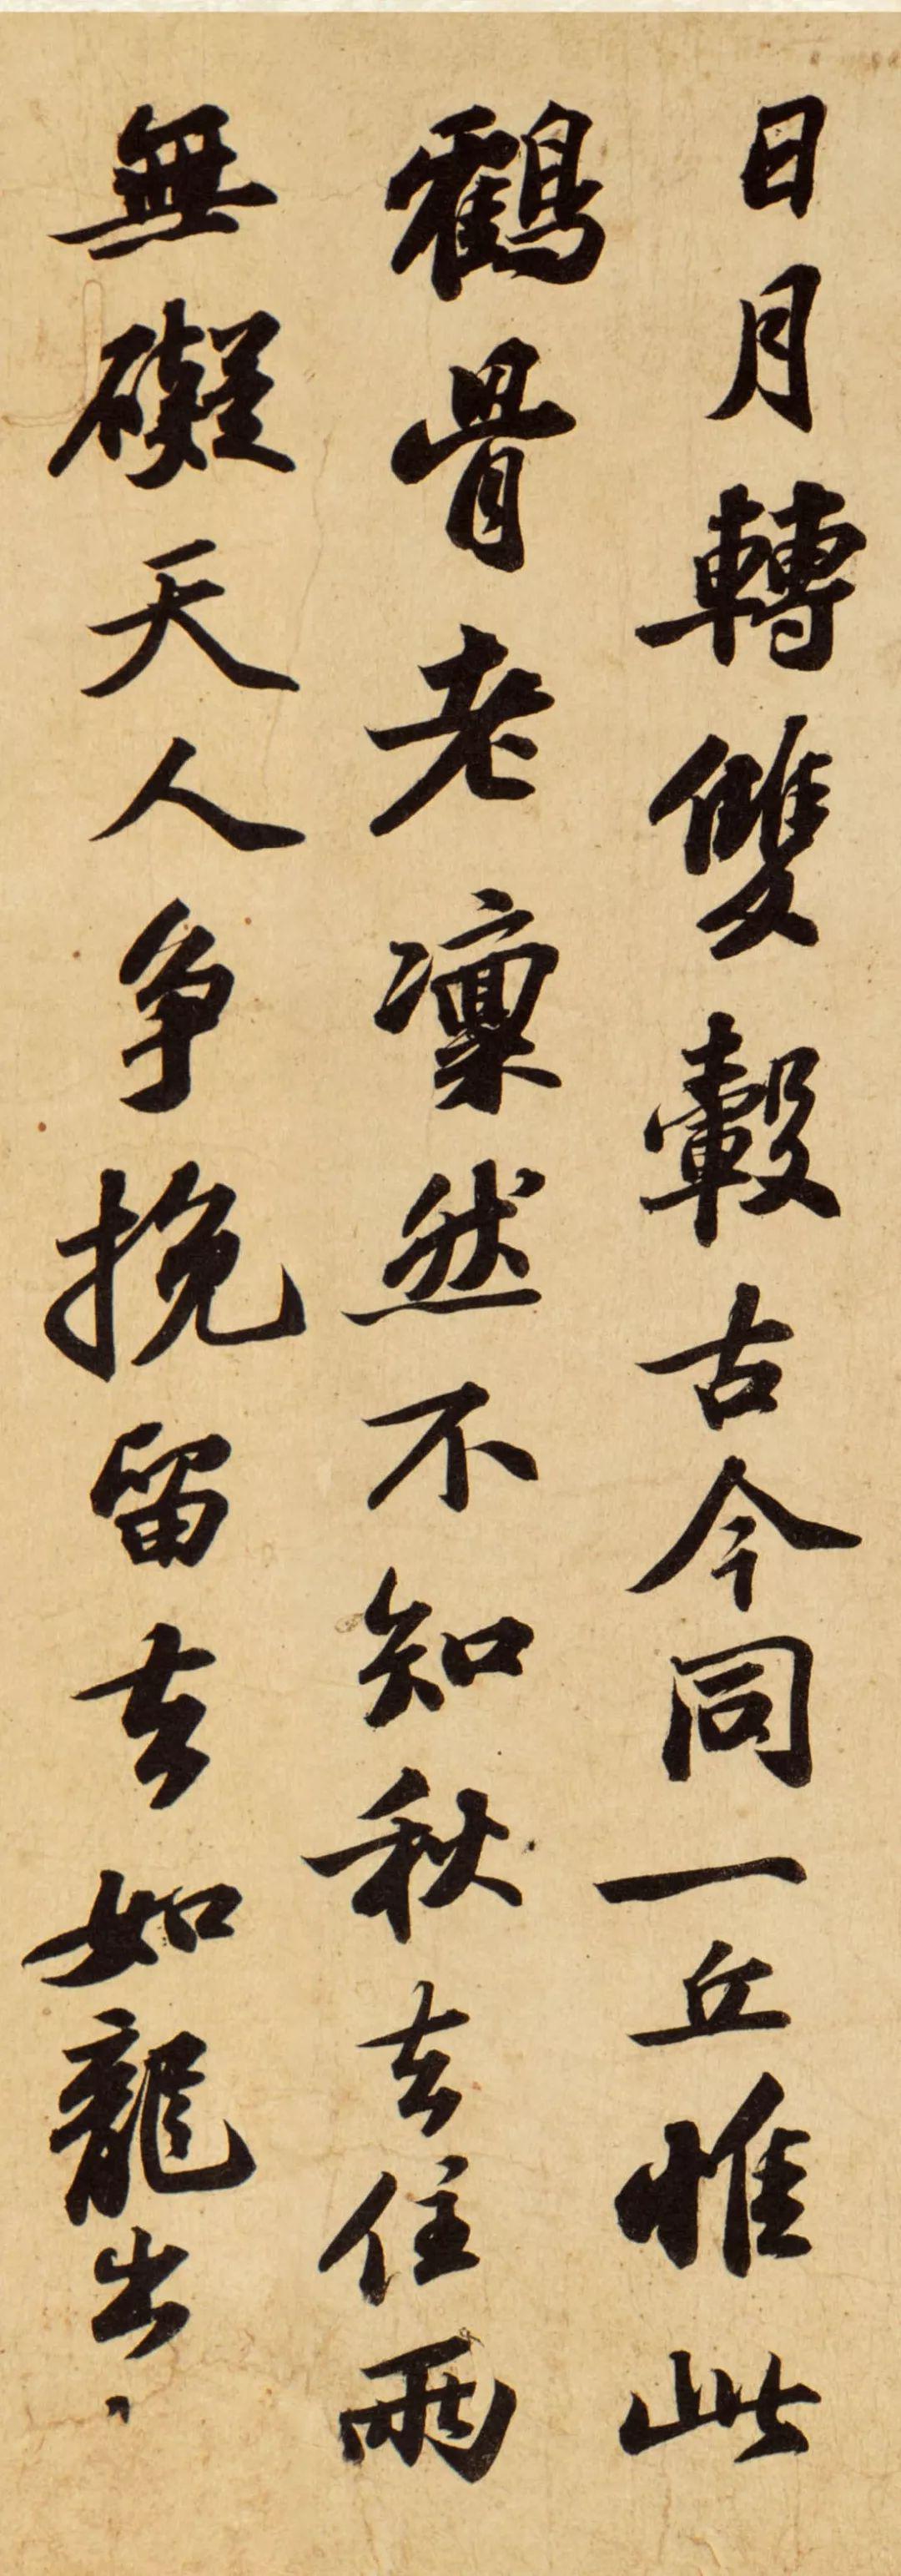 日月轉雙轂古今同一丘惟此
鶴骨老凜然不知秋去住兩
無礙天人争挽留去如龍出